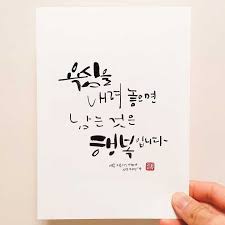 욕심을
내려 놓으면
남는 것은
행복입니다